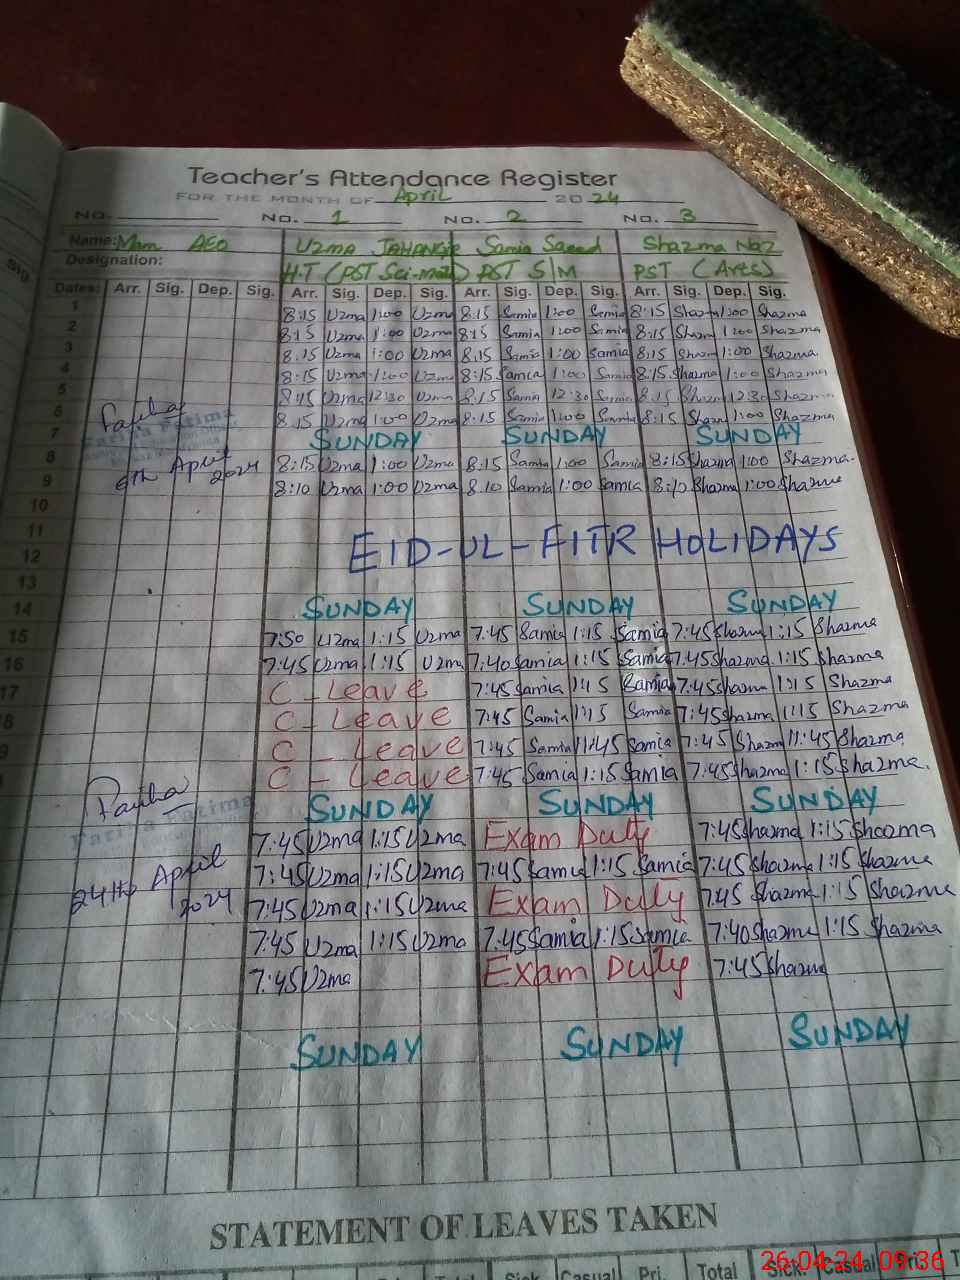 Teacher's Attendance Register
FOR THE MONTH OF April 2024
No. No. 1 No. 2 No. 3
Name: Mam AEO Uzma JAHANGIR Samia Saeed Shazma Naz
Designation: H.T (PST Sci-Math) PST S/M PST (Arts)
Dates: Arr. Sig. Dep. Sig. Arr. Sig. Dep. Sig. Arr. Sig. Dep. Sig. Arr. Sig. Dep. Sig.
1 8:15 Uzma 1:00 Uzma 8:15 Samia 1:00 Samia 8:15 Shazm 1:00 Shazma
2 8:15 Uzma 1:00 Uzma 8:15 Samia 1:00 Samia 8:15 Sharm 1:00 Shazma
3 8:15 Uzma 1:00 Uzma 8:15 Samia 1:00 Samia 8:15 Shazm 1:00 Shazma
4 8:15 Uzma 1:00 Uzma 8:15 Samia 1:00 Samia 8:15 Shazma 1:00 Shazma
5 8:15 Uzma 12:30 Uzma 8:15 Samia 12:30 Samia 8:15 Shazm 12:30 Shazma
6 8:15 Uzma 1:00 Uzma 8:15 Samia 1:00 Samia 8:15 Shazm 1:00 Shazma
Fariha Fatima
7 SUNDAY SUNDAY SUNDAY
8 8:15 Uzma 1:00 Uzma 8:15 Samia 1:00 Samia 8:15 Shazma 1:00 Shazma
6th April 2024
9 8:10 Uzma 1:00 Uzma 8:10 Samia 1:00 Samia 8:10 Shazma 1:00 Shazma
10
11 EID-UL-FITR HOLIDAYS
12
13
14 SUNDAY SUNDAY SUNDAY
15 7:50 Uzma 1:15 Uzma 7:45 Samia 1:15 Samia 7:45 Shazma 1:15 Shazma
16 7:45 Uzma 1:15 Uzma 7:40 Samia 1:15 Samia 7:45 Shazma 1:15 Shazma
17 C-Leave 7:45 Samia 1:15 Samia 7:45 Shazma 1:15 Shazma
8 C-Leave 7:45 Samia 1:15 Samia 7:45 Shazma 1:15 Shazma
9 C-Leave 7:45 Samia 11:45 Samia 7:45 Shazm 11:45 Shazma
C-Leave 7:45 Samia 1:15 Samia 7:45 Shazma 1:15 Shazma.
Fariha Fatima
SUNDAY SUNDAY SUNDAY
7:45 Uzma 1:15 Uzma Exam Duty 7:45 Shazma 1:15 Shazma
7:45 Uzma 1:15 Uzma 7:45 Samia 1:15 Samia 7:45 Shazma 1:15 Shazma
24th April 2024
7:45 Uzma 1:15 Uzma Exam Duty 7:45 Shazma 1:15 Shazma
7:45 Uzma 1:15 Uzma 7:45 Samia 1:15 Samia 7:40 Shazma 1:15 Shazma
7:45 Uzma Exam Duty 7:45 Shazma
SUNDAY SUNDAY SUNDAY
STATEMENT OF LEAVES TAKEN
Total Sick. Casual Pri. Total Sick. Casual Pri.
26-04-24 09:36